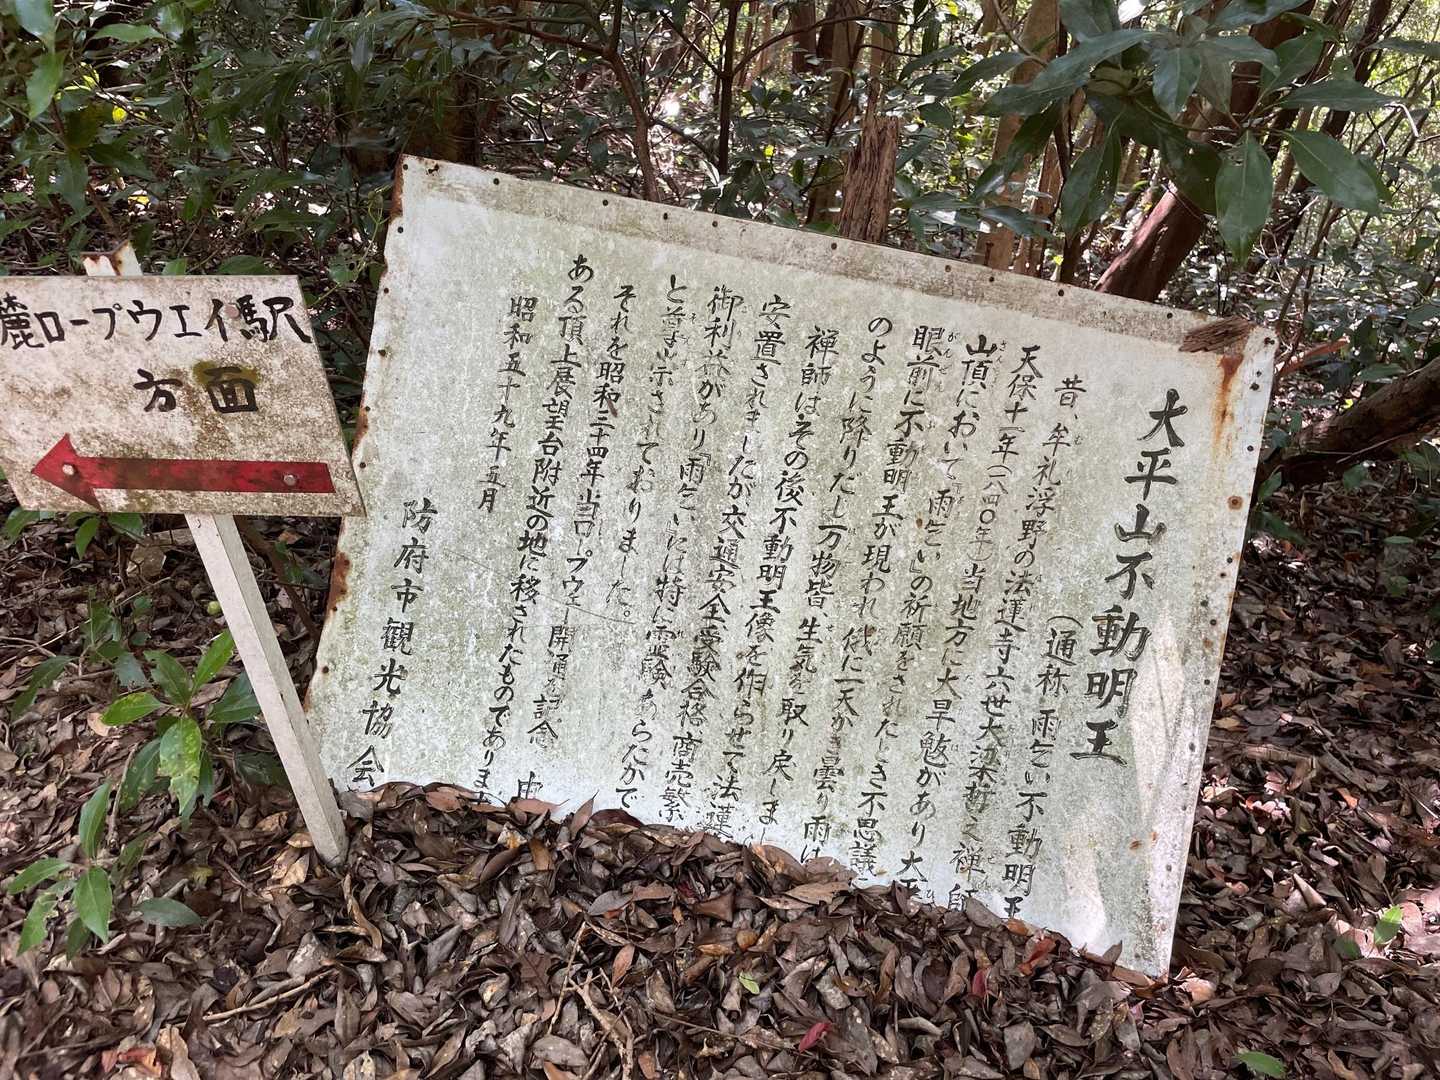 麓ロープウエイ駅
方面
大平山不動明王
(通称 雨乞い不動明王
昔、牟礼浮野の法蓮寺六世大梁哲之禅師
天保十一年(一八四〇年)当地方に大旱魃があり大平
山頂において『雨乞い』の祈願をされたとき不思議
眼前に不動明王が現われ俄に一天かき曇り雨は
のように降りだし万物皆、生気を取り戻しまし
禅師はその後不動明王像を作らせて法蓮
安置されましたが交通安全受験合格商売繁
御利益があり『雨乞い』には特に霊験あらたかで
と尊崇されておりました。
それを昭和三十四年当ロープウェー開通を記念
ある頂上展望台附近の地に移されたものであります
昭和五十九年五月
防府市観光協会